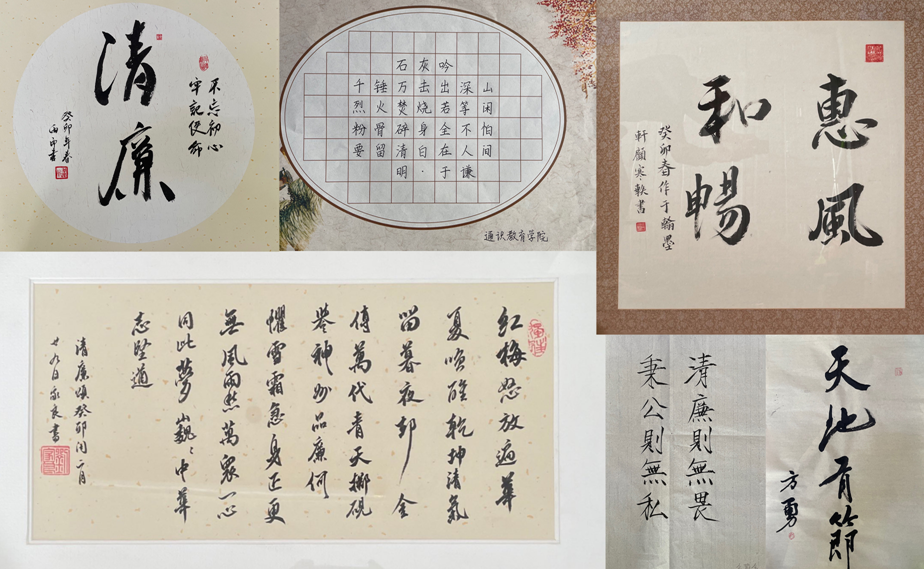 清廉
不忘初心
牢记使命
癸卯年春
石灰吟
千锤万击出深山
烈火焚烧若等闲
粉骨碎身全不怕
要留清白在人间
明·于谦
通识教育学院
惠風
和暢
癸卯春作于翰墨
軒顧寒軼書
紅梅怒放遍華
夏喚醒乾坤清氣
留暮夜却金
傳萬代青天擲硯
譽神州品廉何
懼雪霜急身正更
無風雨愁萬衆一心
同此夢巍〻中華
志堅遒
清廉頌癸卯閏二月
廿九日家良書
天地有節
方勇
清廉則無畏
秉公則無私